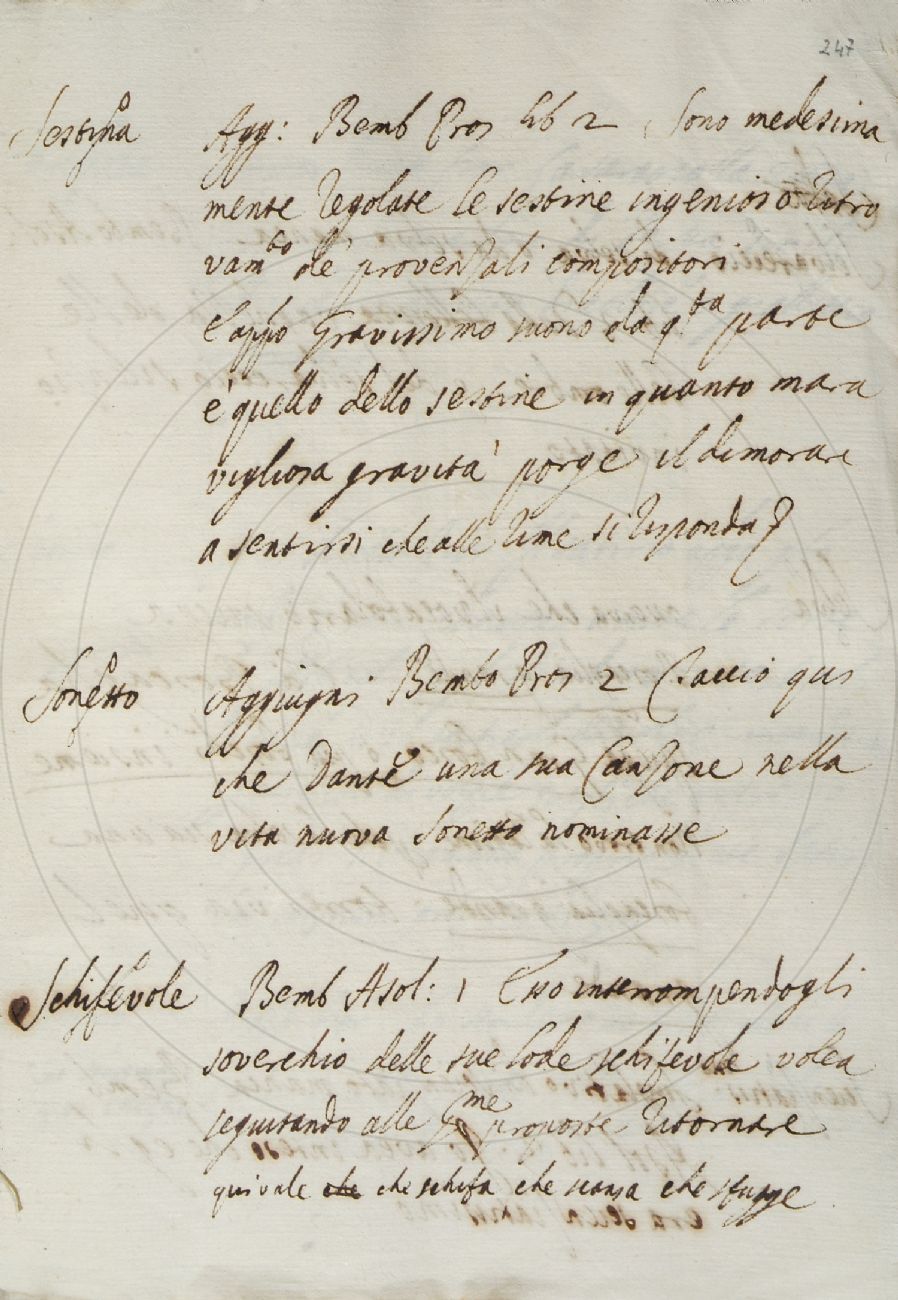 247
Sestina Agg: Bemb Pros lib 2 Sono medesima
mente regolate le sestine ingenioso ritro
vam.to de' provenzali compositori
E appo gravissimo suono da q.ta parte
è quello dello sestine in quanto mara
vigliosa gravità porge il dimorare
a sentirsi che alle rime si risponda
Sonetto Aggiugni Bembo Pros 2 Taccio qui
che Dante una sua Canzone nella
vita nuova sonetto nominasse
Schifevole Bemb Asol: 1 Esso interrompendogli
soverchio delle sue lode schifevole volea
seguitando alle p.me proposte ritornare
qui vale che che schifa che scansa che sfugge